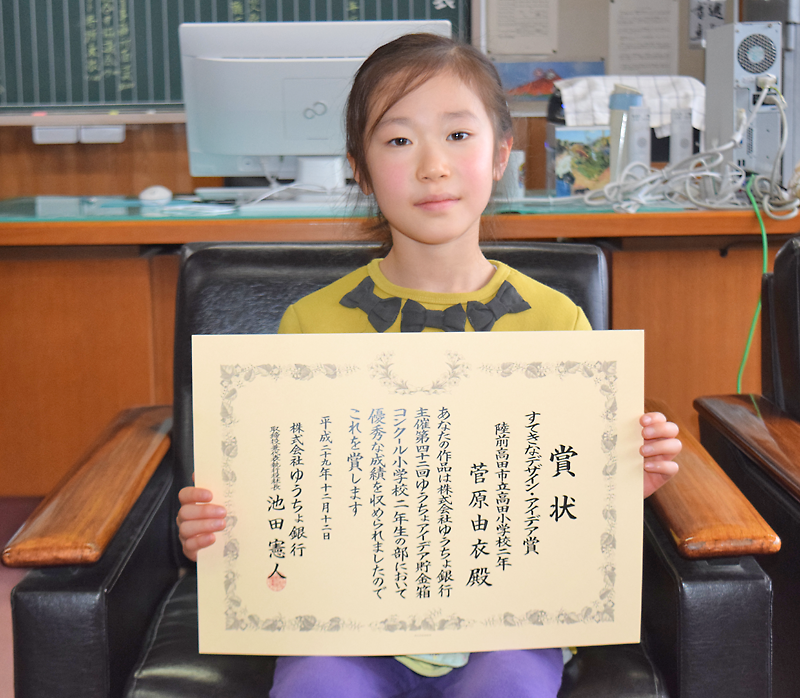 賞状
すてきなデザイン・アイデア賞
陸前高田市立高田小学校二年
菅原由衣殿
あなたの作品は株式会社ゆうちょ銀行
主催第四十二回ゆうちょアイデア貯金箱
コンクール小学校二年生の部において
優秀な成績を収められましたので
これを賞します
平成二十九年十二月十二日
株式会社ゆうちょ銀行
取締役兼代表執行役社長 池田憲人